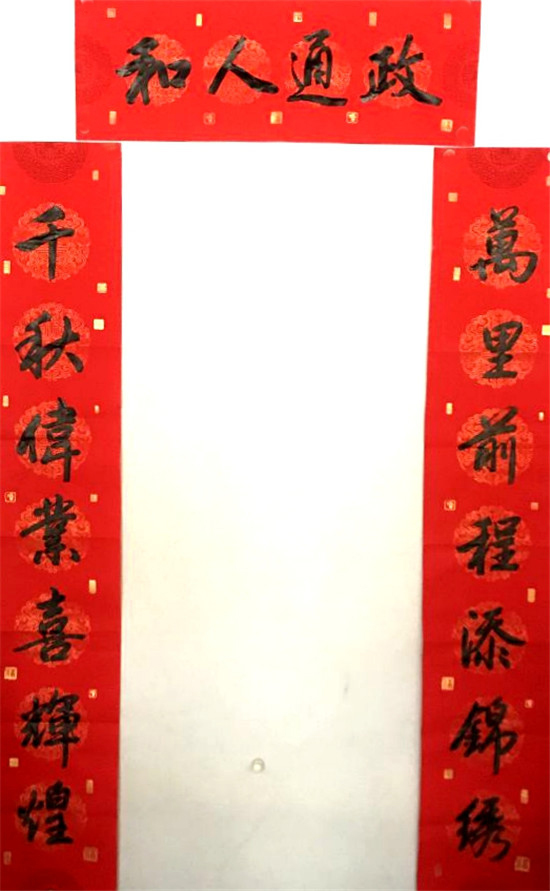 政通人和
萬里前程添錦绣
千秋偉業喜輝煌